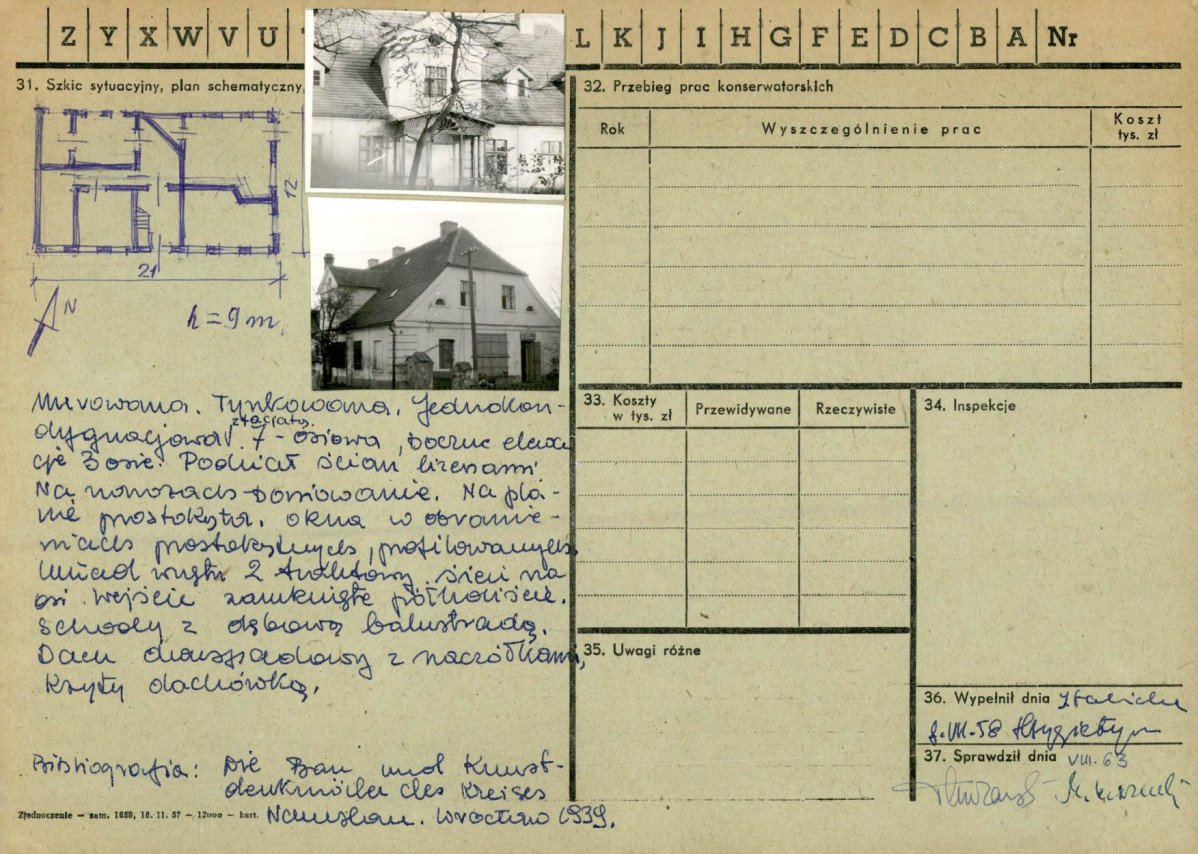 Z Y X W V U L K J I H G F E D C B A Nr
31. Szkic sytuacyjny, plan schematyczny,
12
21
N
h = 9 m.
Murowana. Tynkowana. Jednokon-
dygnacjowa
7-osiowa, boczne elewa
cje 3 osie. Podział ścian lizenami
Na narożach boniowanie. Na pla-
nie prostokąta. okna w obramie-
niach prostokątnych, profilowanych
Układ wnętrz 2 traktowy. sień na
osi. Wejście zamknięte półkoliście.
Schody z dębową balustradą.
Dach dwuspadowy z naczółkami,
kryty dachówką.
Bibliografia: Die Bau und Kunst-
denkmäler des Kreises
Namslau. Wrocław 1939.
Zjednoczenie — zam. 1658, 18. 11. 57 — 12000 — kart.
32. Przebieg prac konserwatorskich
Rok Wyszczególnienie prac Koszt
tys. zł
33. Koszty
w tys. zł Przewidywane Rzeczywiste
34. Inspekcje
35. Uwagi różne
36. Wypełnił dnia
VII-58
37. Sprawdził dnia VIII. 63